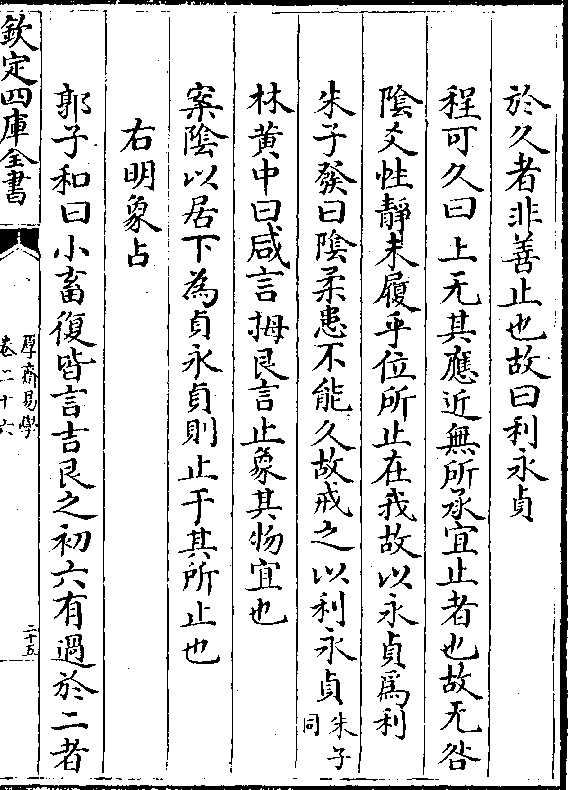 於久者非善止也故曰利永貞
程可久曰上无其應近無所承宜止者也故无咎
陰爻性靜未履乎位所止在我故以永貞為利
朱子發曰陰柔患不能久故戒之以利永貞朱子同
林黄中曰咸言拇艮言止象其物宜也
案陰以居下為貞永貞則止于其所止也
右明象占
郭子和曰小畜復皆言吉艮之初六有過於二者
欽定四庫全書
厚齋易學
卷二十六
二十五